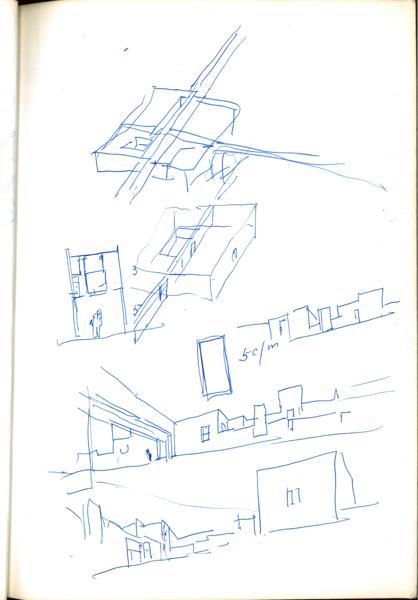 3
5
5 c/m